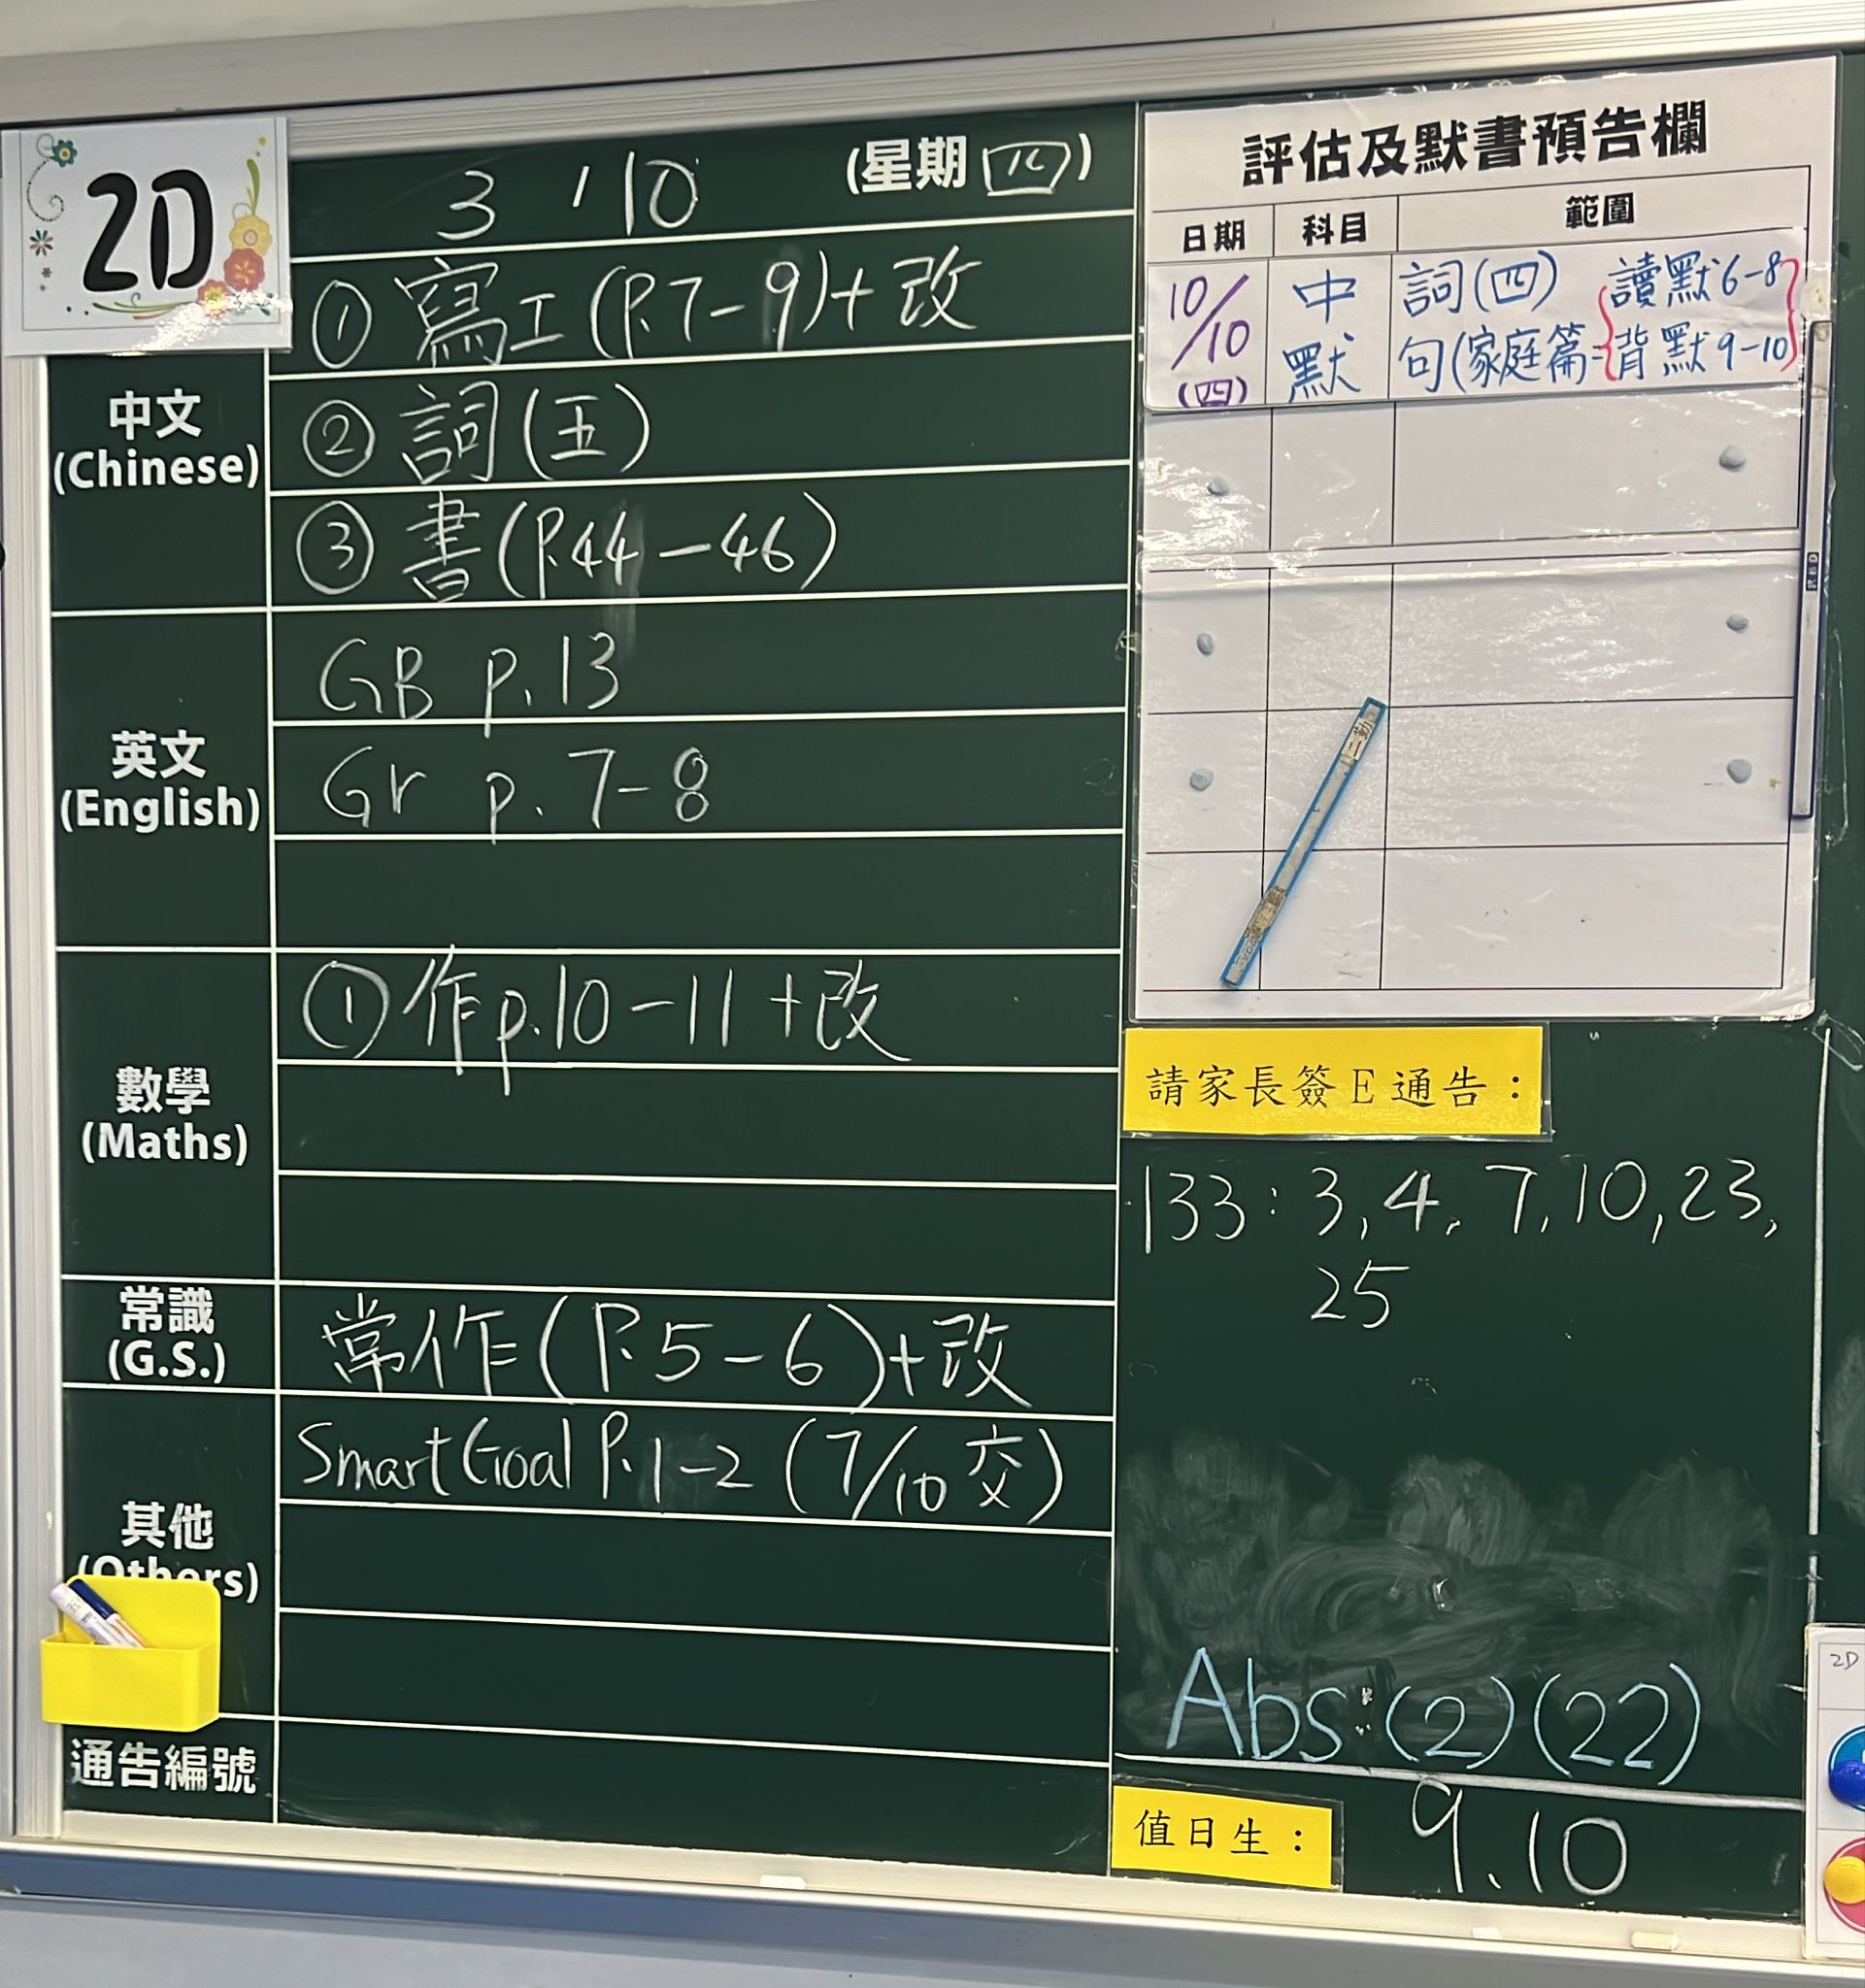 2D
3 '10 (星期四)
中文
(Chinese)
① 寫工(P.7-9)+改
② 詞(五)
③ 書(P.44-46)
英文
(English)
GB p.13
Gr p.7-8
數學
(Maths)
① 作p.10-11+改
常識
(G.S.)
常作(P.5-6)+改
其他
(Others)
Smart Goal P.1-2 (7/10 交)
通告編號
評估及默書預告欄
日期 科目 範圍
10/10 (四) 中默 詞(四) 讀默6-8
句(家庭篇: 背默9-10
請家長簽E通告：
133: 3, 4, 7, 10, 23,
25
Abs: (2)(22)
值日生： 9.10
2D